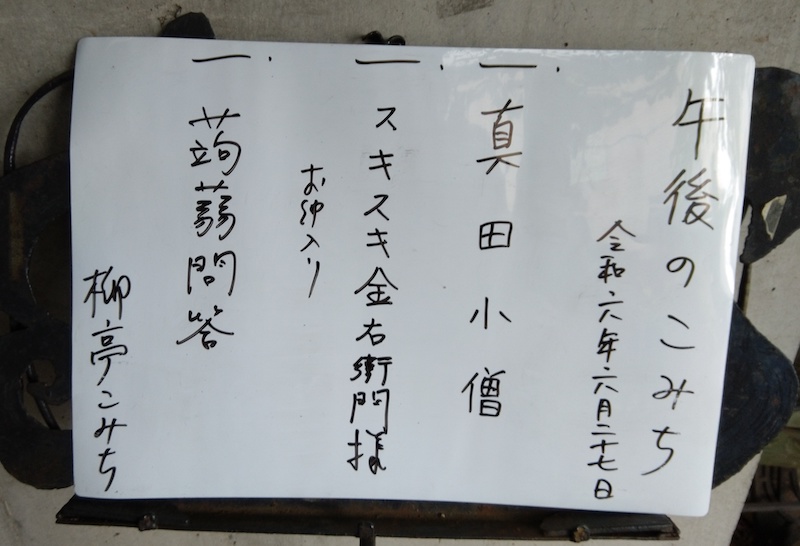 午後のこみち
令和六年六月二十七日
一.真田小僧
一.スキスキ金右衛門様
お仲入り
一.蒟蒻問答
柳亭こみち